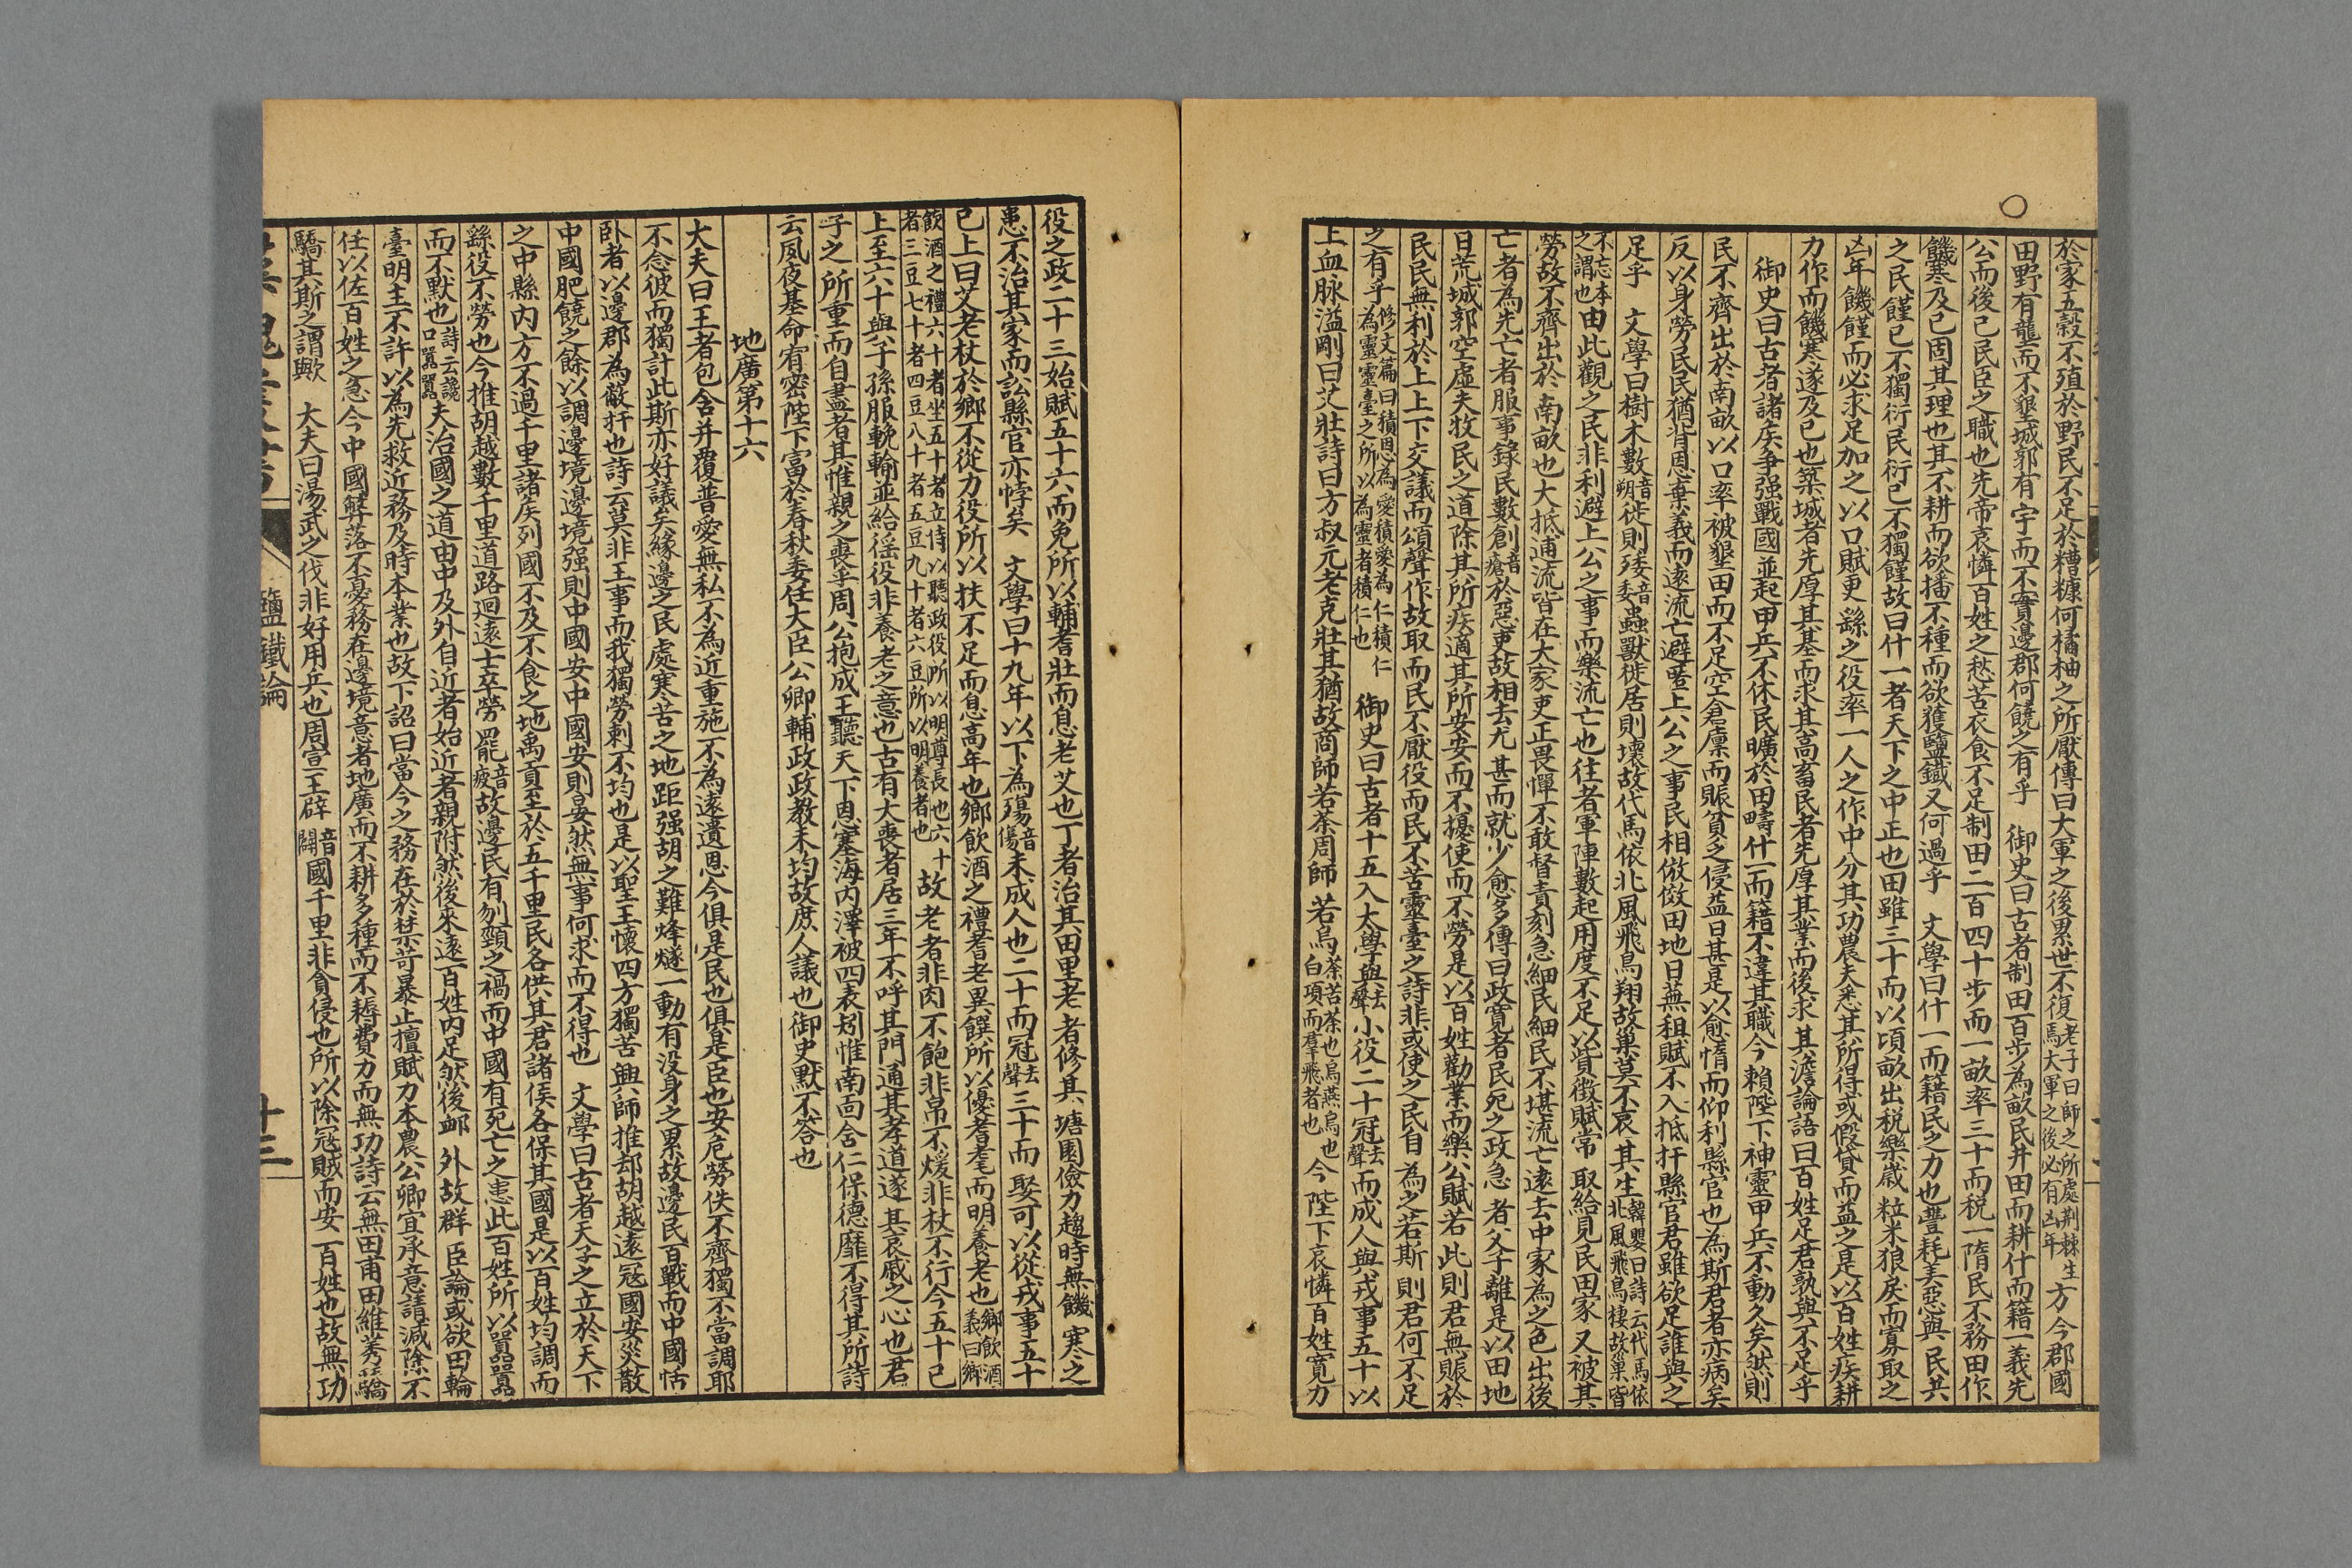 於家五穀不殖於野民不足於糟糠何橘柚之所厭傳曰大軍之後累世不復老子曰師之所處荆棘生焉大軍之後必有凶年方今郡國
田野有壟而不墾城郭有宇而不實邊郡何饒之有乎　御史曰古者制田百步為畝民井田而耕什而籍一義先
公而後己民臣之職也先帝哀憐百姓之愁苦衣食不足制田二百四十步而一畝率三十而税一隋民不務田作
饑寒及己固其理也其不耕而欲播不種而欲獲鹽鐵又何過乎　文學曰什一而籍民之力也豐耗美惡與民共
之民饉己不獨衍民衍己不獨饉故曰什一者天下之中正也田雖三十而以頃畝出税樂歲粒米狼戾而寡取之
凶年饑饉而必求足加之以口賦更繇之役率一人之作中分其功農夫悉其所得或假貸而益之是以百姓疾耕
力作而饑寒遂及己也築城者先厚其基而求其高畜民者先厚其業而後求其澹論語曰百姓足君孰與不足乎
御史曰古者諸侯爭强戰國並起甲兵不休民曠於田疇什一而籍不違其職今賴陛下神靈甲兵不動久矣然則
民不齊出於南畝以口率被墾田而不足空倉廩而賑貧乏侵益日甚是以愈惰而仰利縣官也為斯君者亦病矣
反以身勞民民猶背恩棄義而遠流亡避匿上公之事民相倣傚田地日蕪租賦不入抵扞縣官君雖欲足誰與之
足乎　文學曰樹木數音朔徙則㾏音委蟲獸徙居則壞故代馬依北風飛鳥翔故巢莫不哀其生韓嬰曰詩云代馬依北風飛鳥棲故巢皆
不忘本之謂也由此觀之民非利避上公之事而樂流亡也往者軍陣數起用度不足以訾徵賦常取給見民田家又被其
勞故不齊出於南畝也大抵逋流皆在大家吏正畏憚不敢督責刻急細民細民不堪流亡遠去中家為之色出後
亡者為先亡者服事錄民數創音瘡於惡吏故相去尤甚而就少愈多傳曰政寛者民死之政急者父子離是以田地
日荒城郭空虛夫牧民之道除其所疾適其所安安而不擾使而不勞是以百姓勸業而樂公賦若此則君無賑於
民民無利於上上下交議而頌聲作故取而民不厭役而民不苦靈臺之詩非或使之民自為之若斯則君何不足
之有乎修文篇曰積恩為愛積愛為仁積仁為靈靈臺之所以為靈者積仁也　御史曰古者十五入太學與去聲小役二十冠去聲而成人與戎事五十以
上血脉溢剛曰艾壯詩曰方叔元老克壯其猶故商師若荼周師若烏荼苦荼也烏燕烏也白項而羣飛者也今陛下哀憐百姓寛力
役之政二十三始賦五十六而免所以輔耆壯而息老艾也丁者治其田里老者修其塘園儉力趨時無饑寒之
患不治其家而訟縣官亦悖矣　文學曰十九年以下為殤音傷未成人也二十而冠去聲三十而娶可以從戎事五十
已上曰艾老杖於鄉不從力役所以扶不足而息高年也鄉飲酒之禮耆老異饌所以優耆耄而明養老也鄉飲酒義曰鄉
飲酒之禮六十者坐五十者立侍以聽政役所以明尊長也六十者三豆七十者四豆八十者五豆九十者六豆所以明養者也故老者非肉不飽非帛不煖非杖不行今五十已
上至六十與子孫服輓輸並給徭役非養老之意也古有大喪者居三年不呼其門通其孝道遂其哀戚之心也君
子之所重而自盡者其惟親之喪乎周公抱成王聽天下恩塞海内澤被四表矧惟南面含仁保德靡不得其所詩
云夙夜基命宥密陛下富於春秋委任大臣公卿輔政政教未均故庶人議也御史默不答也
地廣第十六
大夫曰王者包含并覆普愛無私不為近重施不為遠遺恩今俱是民也俱是臣也安危勞佚不齊獨不當調耶
不念彼而獨計此斯亦好議矣緣邊之民處寒苦之地距强胡之難烽燧一動有没身之累故邊民百戰而中國恬
卧者以邊郡為蔽扞也詩云莫非王事而我獨勞刺不均也是以聖王懷四方獨苦興師推却胡越遠寇國安災散
中國肥饒之餘以調邊境邊境强則中國安中國安則晏然無事何求而不得也　文學曰古者天子之立於天下
之中縣内方不過千里諸侯列國不及不食之地禹貢至於五千里民各供其君諸侯各保其國是以百姓均調而
繇役不勞也今推胡越數千里道路迴遠士卒勞罷音疲故邊民有刎頸之禍而中國有死亡之患此百姓所以嚣嚣
而不默也詩云讒口嚣嚣夫治國之道由中及外自近者始近者親附然後來遠百姓内足然後卹外故群臣論或欲田輪
臺明主不許以為先救近務及時本業也故下詔曰當今之務在於禁苛暴止擅賦力本農公卿宜承意請減除不
任以佐百姓之急今中國弊落不憂務在邊境意者地廣而不耕多種而不耨費力而無功詩云無田甫田維莠驕
驕其斯之謂歟　大夫曰湯武之伐非好用兵也周宣王辟音闢國千里非貪侵也所以除寇賊而安百姓也故無功
鹽鐵論
十三